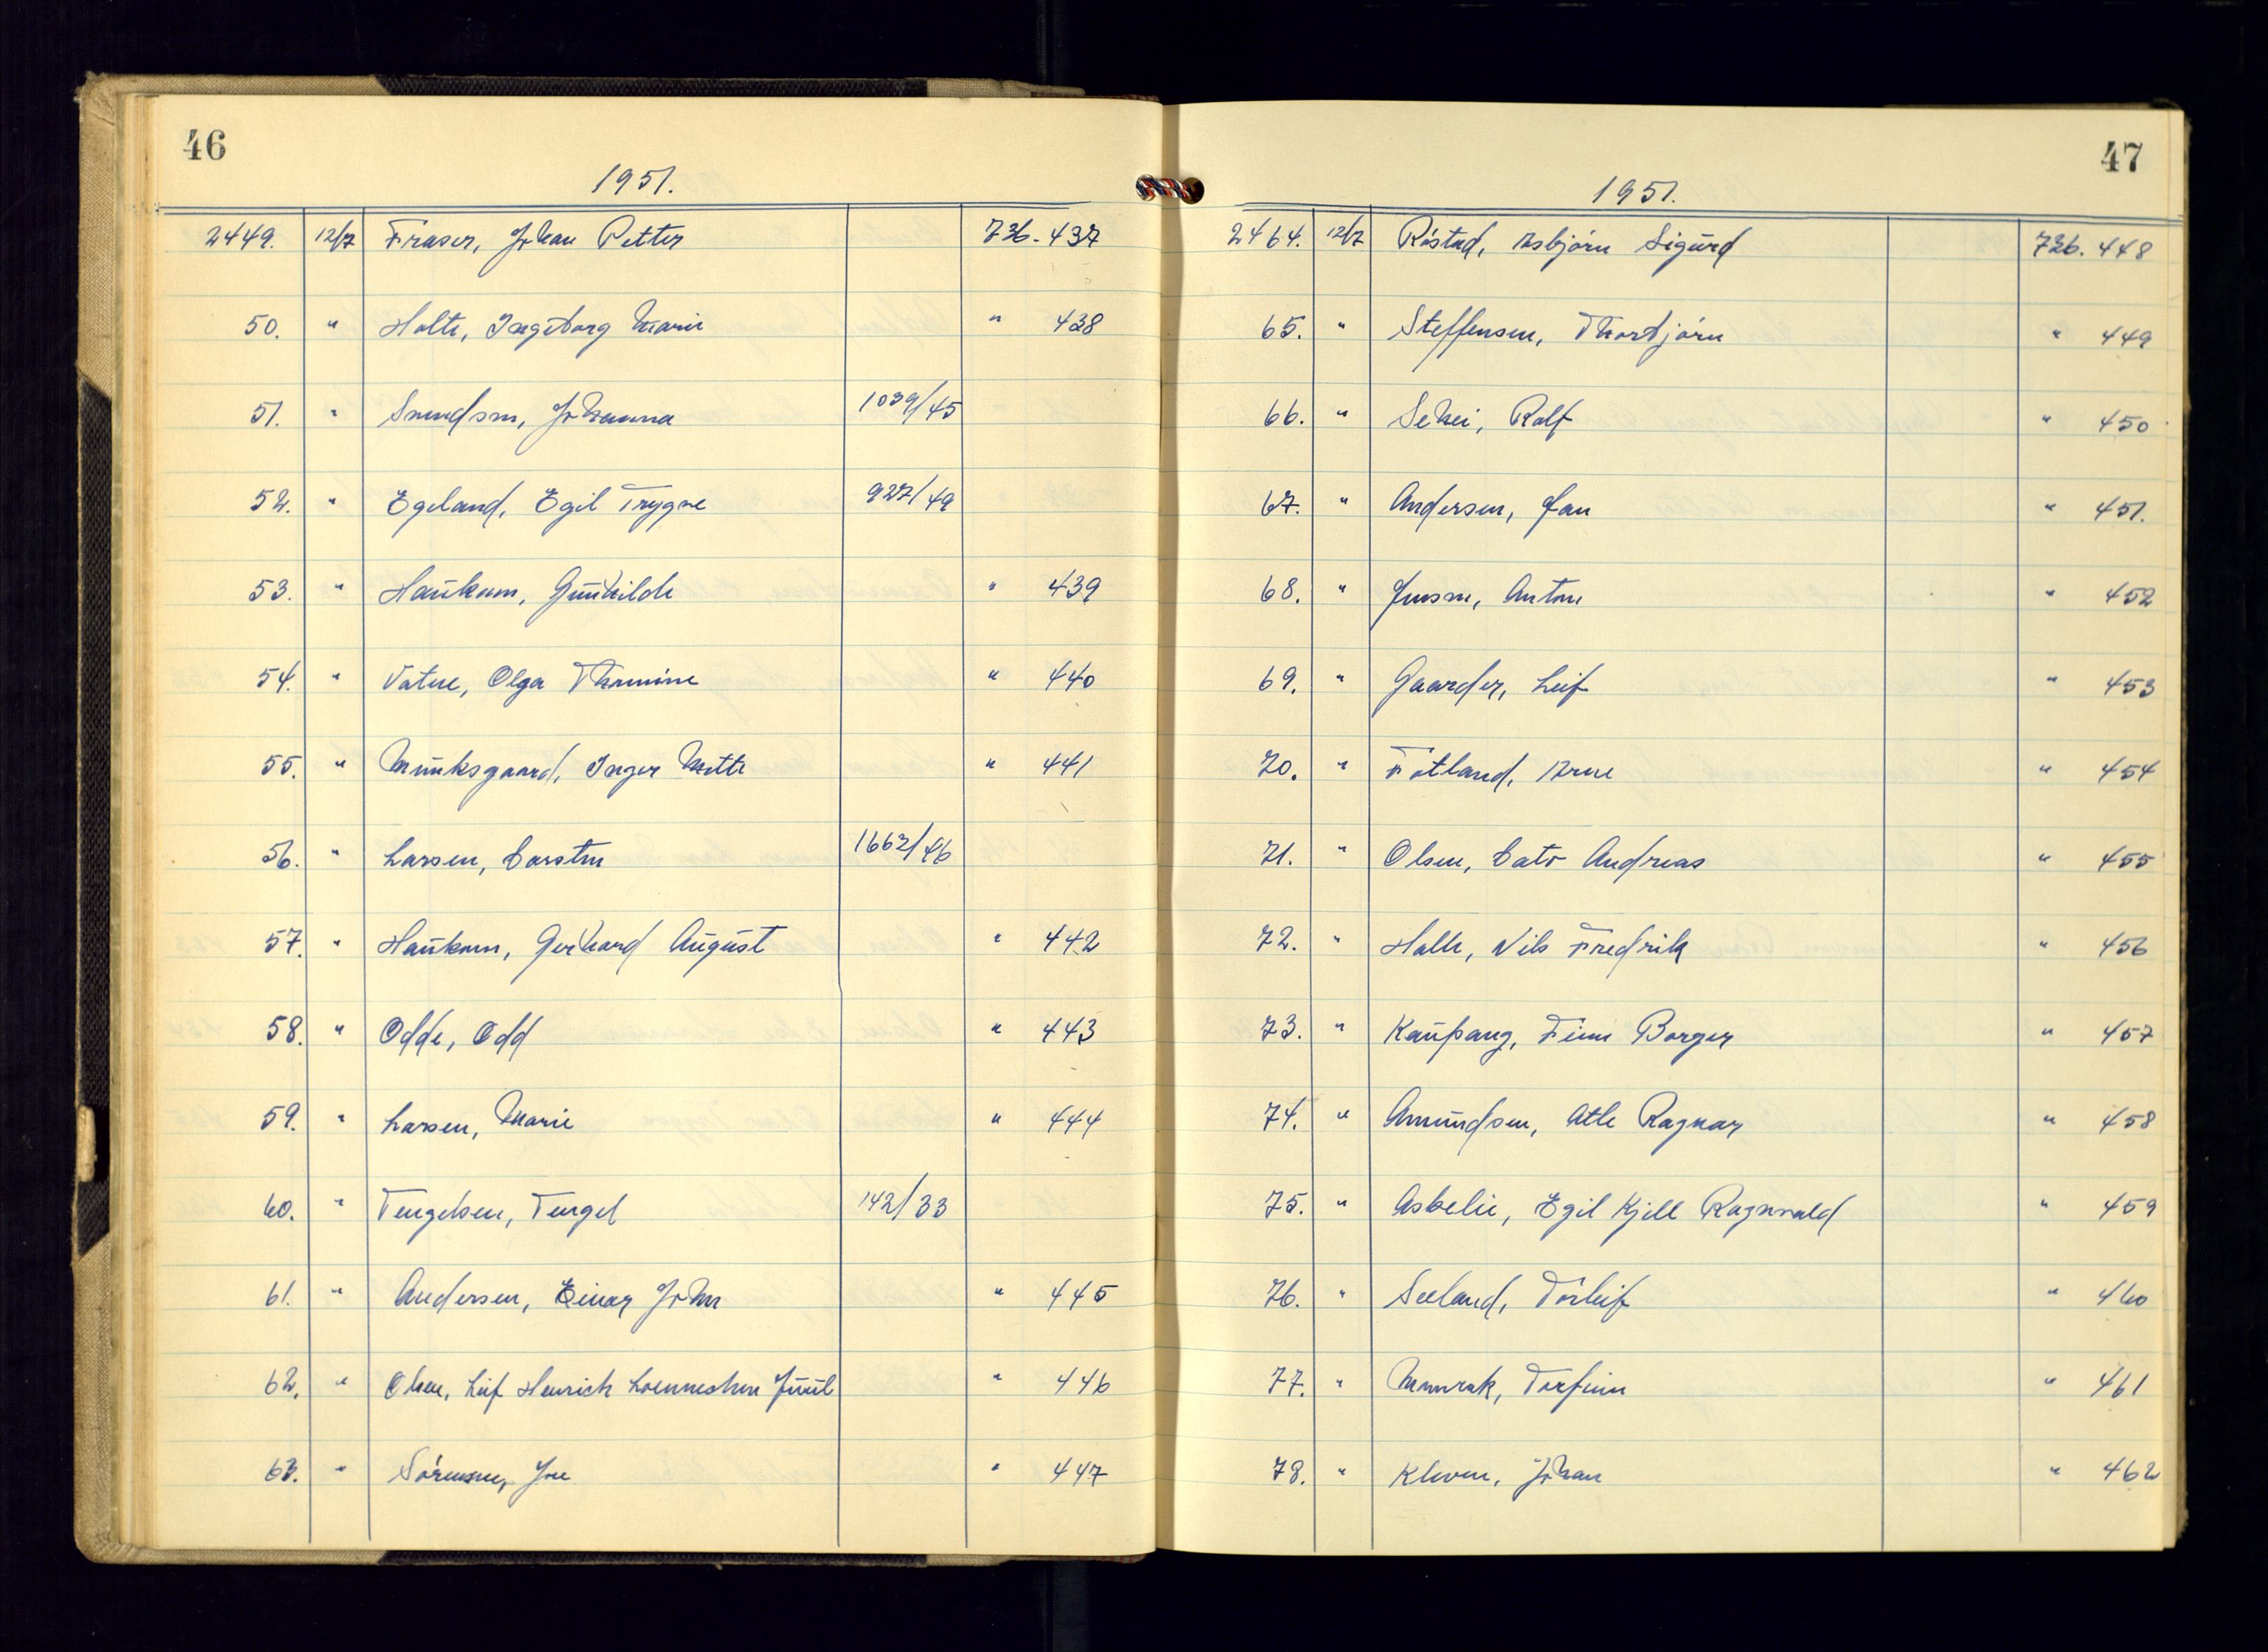 46
1951.
2449. 12/7 Fraser, Johan Petter 736. 437
50. " Holte, Ingeborg Marie " 438
51. " Svendsen, Johanna 1039/45
52. " Egeland, Egil Trygve 927/49
53. " Haukom, Gunhilde " 439
54. " Vatne, Olga Thomine " 440
55. " Munksgaard, Inger Mette " 441
56. " Larsen, Carsten 1662/46
57. " Haukom, Gerhard August " 442
58. " Odde, Odd " 443
59. " Larsen, Marie " 444
60. " Tengelsen, Tengel 142/33
61. " Andersen, Einar John " 445
62. " Olsen, Leif Henrich Juul " 446
63. " Sörensen, " 447
47
1951.
2464. 12/7 Röstad, Asbjörn Sigurd 736. 448
65. " Steffensen, Thorbjörn " 449
66. " Sehei, Rolf " 450
67. " Andersen, Jan " 451.
68. " Jensen, Anton " 452
69. " Gaarder, Leif " 453
70. " Fötland, Arne " 454
71. " Olsen, Cato Andreas " 455
72. " Holte, Nils Fredrik " 456
73. " Kaupang, Finn Borger " 457
74. " Amundsen, Atle Ragnar " 458
75. " Asbelie, Egil Kjell Ragnvald " 459
76. " Seeland, Torleif " 460
77. " Momrak, Torfinn " 461
78. " Kleven, Johan " 462